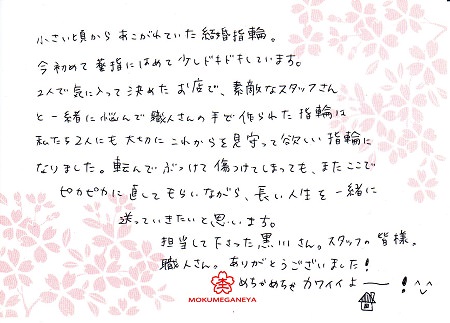 小さい頃からあこがれていた結婚指輪。
今初めて薬指にはめて少しドキドキしています。
2人で気に入って決めたお店で、素敵なスタッフさん
と一緒に悩んで職人さんの手で作られた指輪は
私たち2人にも大切にこれからを見守って欲しい指輪に
なりました。転んでぶつけて傷つけてしまっても、またここで
ピカピカに直してもらいながら、長い人生を一緒に
送っていきたいと思います。
担当して下さった黒川さん。スタッフの皆様。
職人さん。ありがとうございました!
めちゃめちゃカワイイよー!
MOKUMEGANEYA